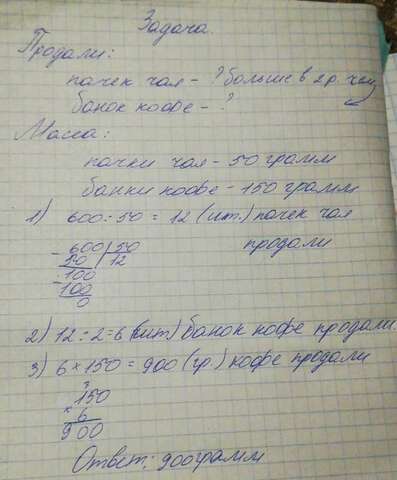 Задача.
Продали:
пачек чая - ? больше в 2 р. чем
банок кофе - ?
Масса:
пачки чая - 50 грамм
банки кофе - 150 грамм
1) 600 : 50 = 12 (шт.) пачек чая
продали
- 600 | 50
50 | 12
- 100
100
0
2) 12 : 2 = 6 (шт) банок кофе продали.
3) 6 × 150 = 900 (гр.) кофе продали
150
× 6
900
Ответ: 900 грамм